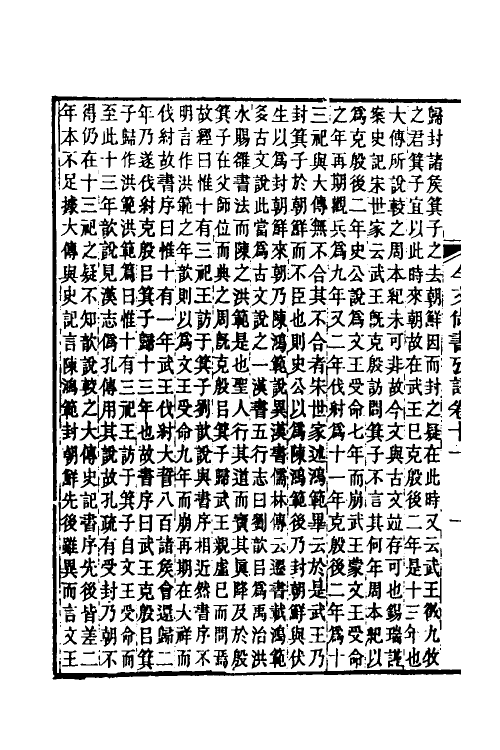 歸封諸侯箕子之去朝鮮因而封之疑在此時又云武王徵九牧
之君箕子宜以此時來朝故在武王巳克殷後二年是十三年也
大傳所說較之周本紀未可非故今文與古文竝存可也錫瑞謹
案史記宋世家云武王旣克殷訪問箕子不言其何年周本紀以
爲克殷後二年史公說爲文王受命七年而崩武王蒙文王受命
之年再期觀兵爲九年又二年伐紂爲十一年克殷後二年爲十
三祀與大傳無不合其不合者宋世家述鴻範畢云於是武王乃
封箕子於朝鮮而不臣也則史公以爲陳鴻範後乃封朝鮮與伏
生以爲封朝鮮來朝乃陳鴻範說異漢書儒林傳云遷書載鴻範
多古文說此當爲古文說之一漢書五行志曰劉歆㠯爲禹治洪
水賜雒書法而陳之洪範是也聖人行其道而寶其眞降及於殷
箕子在父師位而典之周旣克殷㠯箕子歸武王親虛己而問焉
故經曰惟十有三祀王訪于箕子劉歆說與書序相近然書序不
明言作洪範之年歆則以爲文王受命九年而崩再期在大祥而
伐紂故書序曰惟十有一年武王伐紂大誓八百諸侯會還歸二
年乃遂伐紂克殷㠯箕子歸十三年也故書序曰武王克殷㠯箕
子歸作洪範洪範篇曰惟十有三祀王訪于箕子自文王受命而
至此十三年歆說見漢志僞孔傳用其說故孔疏有受封乃朝不
得仍在十三祀之疑不知歆說較之大傳史記書序先後皆差二
年本不足據大傳與史記言陳鴻範封朝鮮先後雖異而言文王
今文尙書攷證卷十一 一